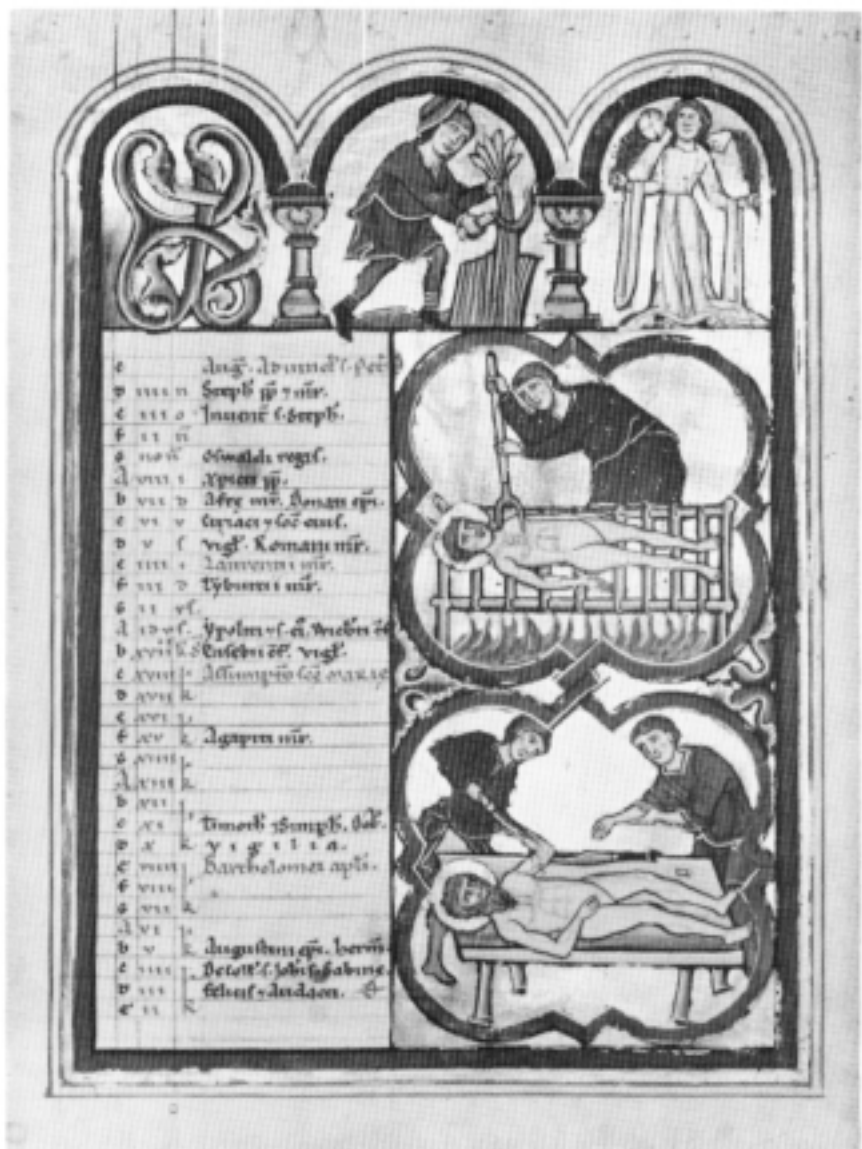 c Aug. Advincl' s. Petr
d iiii n Steph pp 7 mr.
e iii o Invent s. Steph.
f ii n
g non Oswaldi regis.
A viii i Xpisti pp.
b vii d Afre mr. Donati epi.
c vi v Ciriaci 7 soc eius.
d v s vigl'. Romani mr.
e iiii i Laurentii mr.
f iii d Tyburtii mr.
g ii us.
A idus. Ypoliti
b xviiii k Eusebii cf. vigl'.
c xviii k Assumptio sce Marie
d xvii k
e xvi k
f xv k Agapiti mr.
g xiiii k
A xiii k
b xii k
c xi k Timoth 7 Simph.
d x k vigilia.
e viiii k Bartholomei apli.
f viii k
g vii k
A vi k
b v k Augustini epi. herm
c iiii k Decoll' s. Joh. Sabine.
d iii k Felicis 7 Audacti.
e ii k